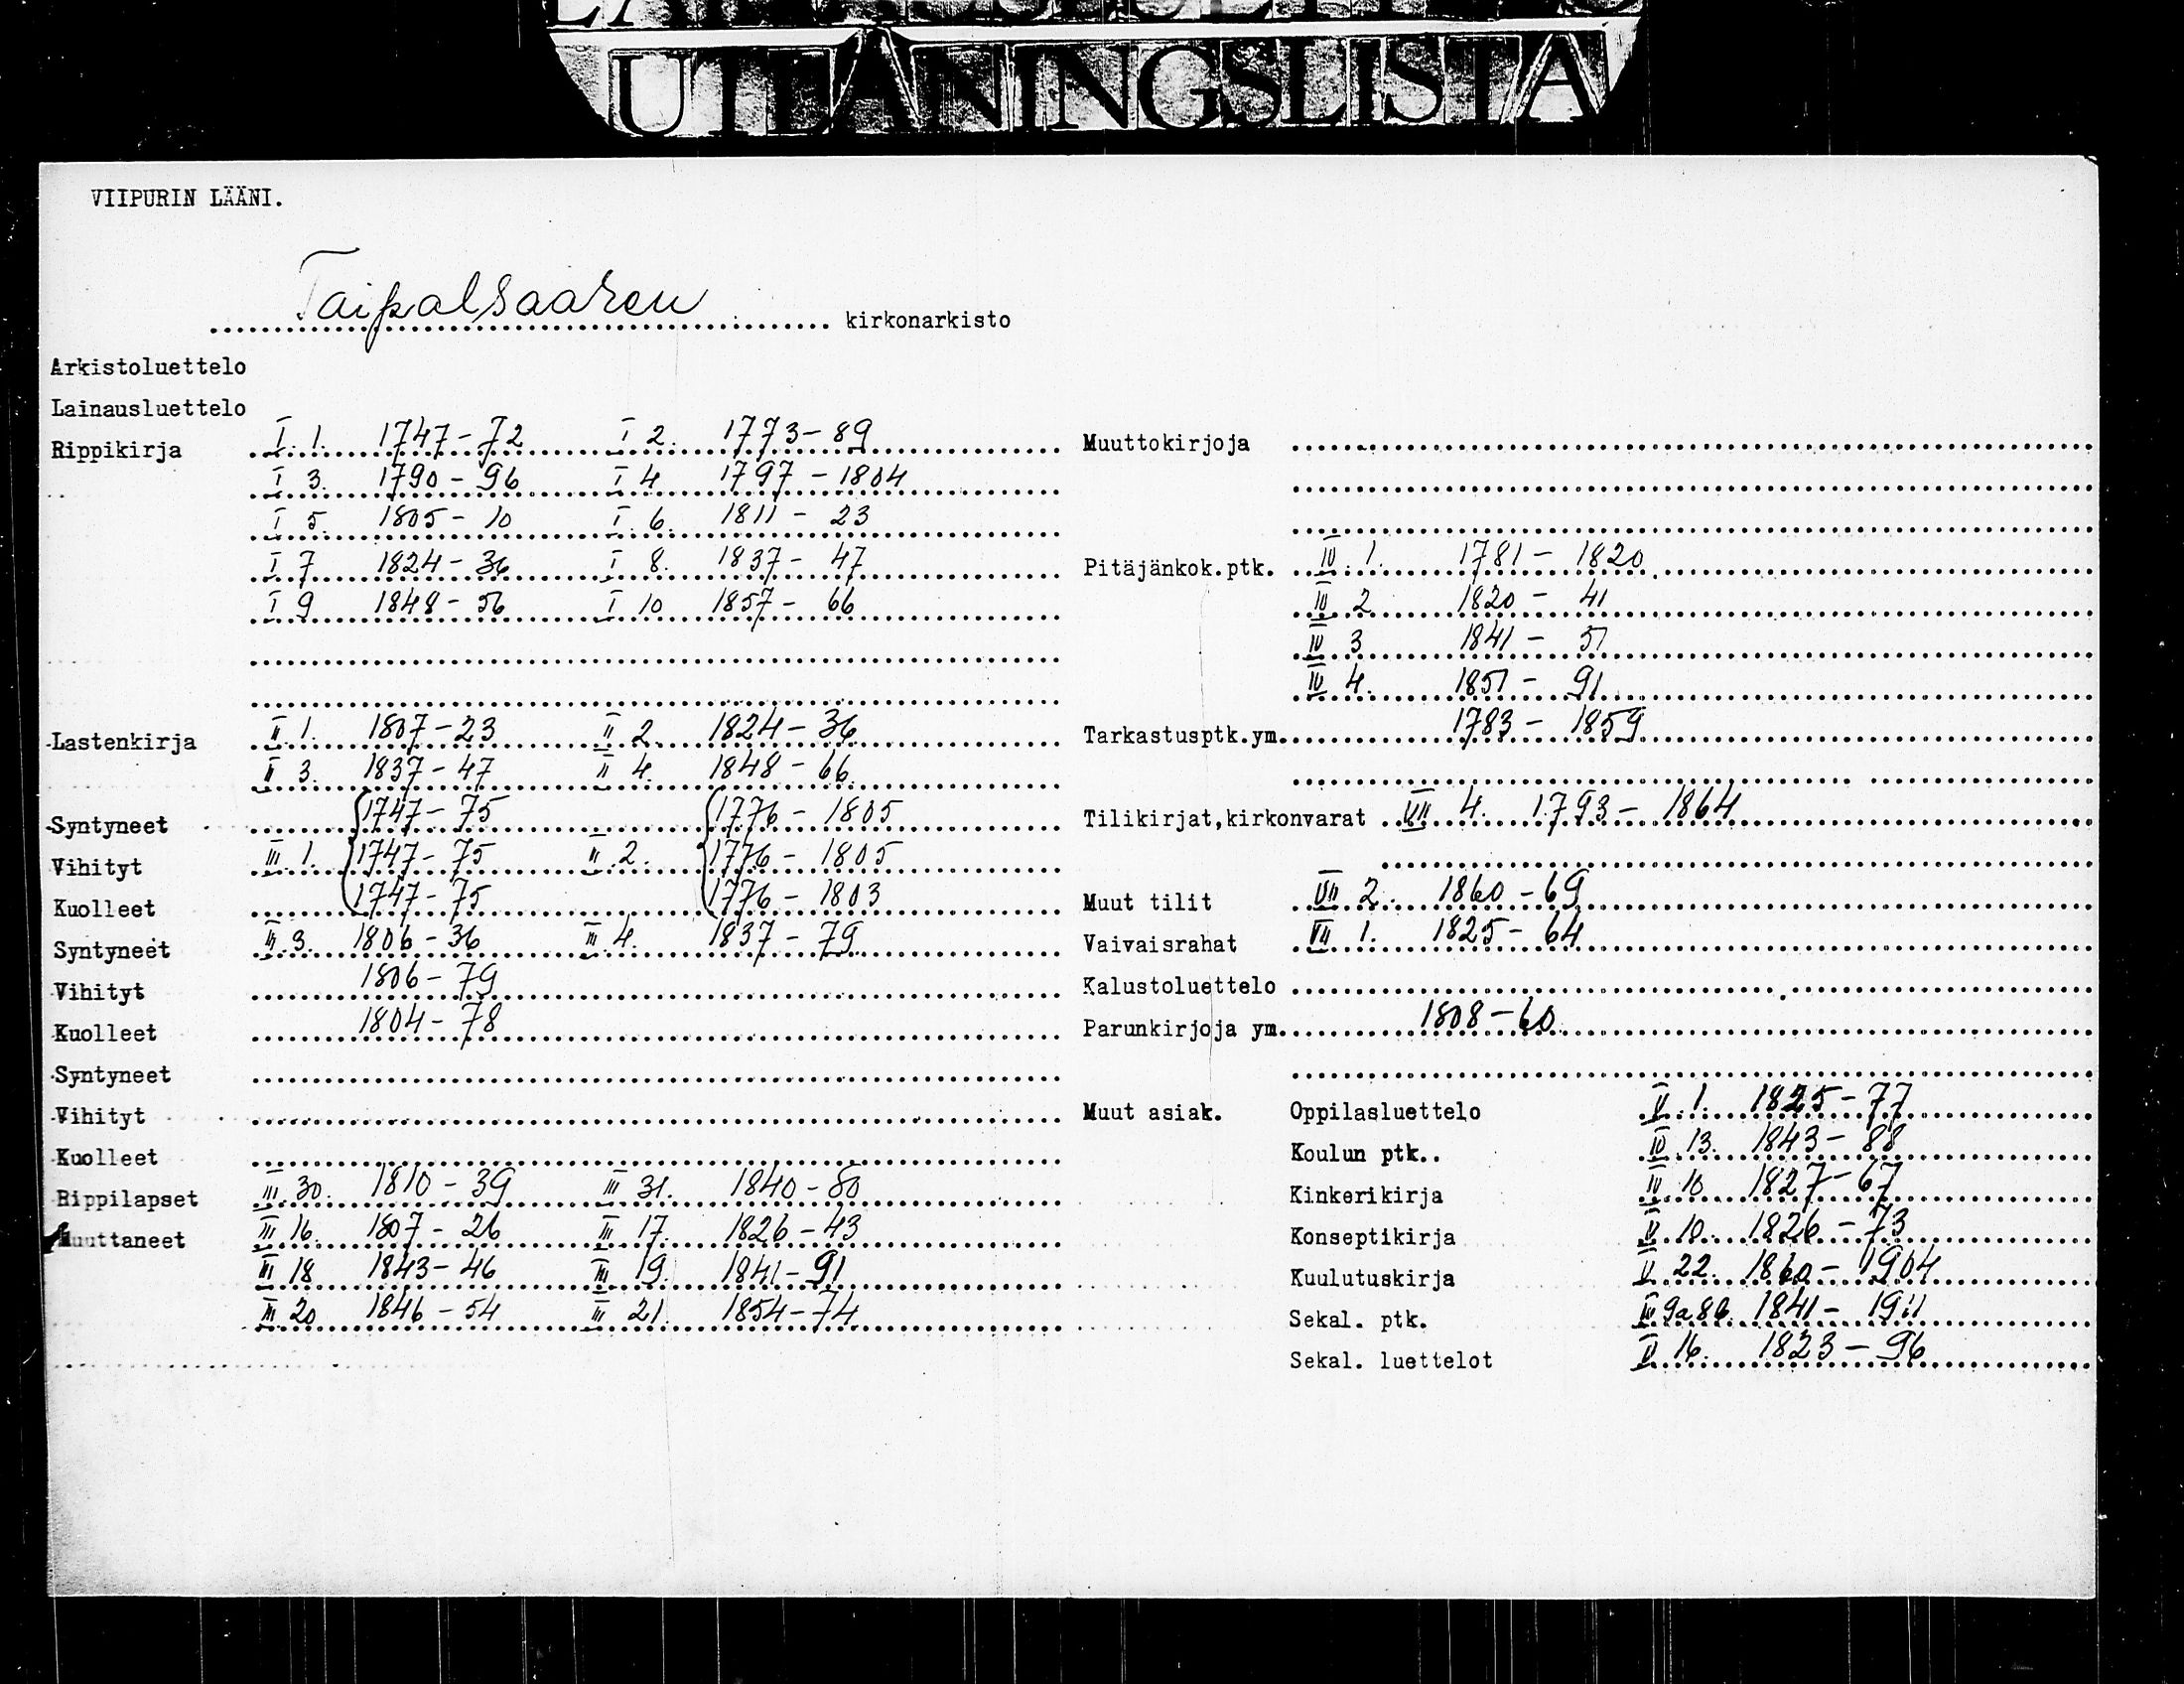 UTLÅNINGSLISTA
VIIPURIN LÄÄNI.
Taipalsaaren kirkonarkisto
Arkistoluettelo
Lainausluettelo
Rippikirja I. 1. 1747-72 I 2. 1773-89
I 3. 1790-96 I 4 1797-1804
I 5. 1805-10 I. 6. 1811-23
I 7 1824-36 I 8. 1837-47
I 9 1848-56 I 10 1857-66
Lastenkirja II 1. 1807-23 II 2 1824-36
II 3. 1837-47 II 4. 1848-66
Syntyneet 1747-75 1776-1805
Vihityt III. 1. 1747-75 II. 2. 1776-1805
Kuolleet 1747-75 1776-1803
Syntyneet III. 3. 1806-36 III. 4. 1837-79
Vihityt 1806-79
Kuolleet 1804-78
Syntyneet
Vihityt
Kuolleet
Rippilapset III. 30. 1810-39 III 31. 1840-80
Muuttaneet III 16. 1807-26 III 17. 1826-43
III 18 1843-46 III 19. 1841-91
III 20 1846-54 III 21. 1854-74
Muuttokirjoja
Pitäjänkok.ptk. IV. 1. 1781-1820
IV 2 1820-41
IV 3 1841-51
IV 4. 1851-91
Tarkastusptk.ym. 1783-1859
Tilikirjat,kirkonvarat VII 4. 1793-1864
Muut tilit VII 2. 1860-69
Vaivaisrahat VII 1. 1825-64
Kalustoluettelo
Parunkirjoja ym. 1808-60
Muut asiak. Oppilasluettelo V. 1. 1825-77
Koulun ptk.. IV. 13. 1843-88
Kinkerikirja IV. 10 1827-67
Konseptikirja V. 10. 1826-73
Kuulutuskirja V 22. 1860-1904
Sekal. ptk. 1841-1911
Sekal. luettelot V. 16. 1823-96